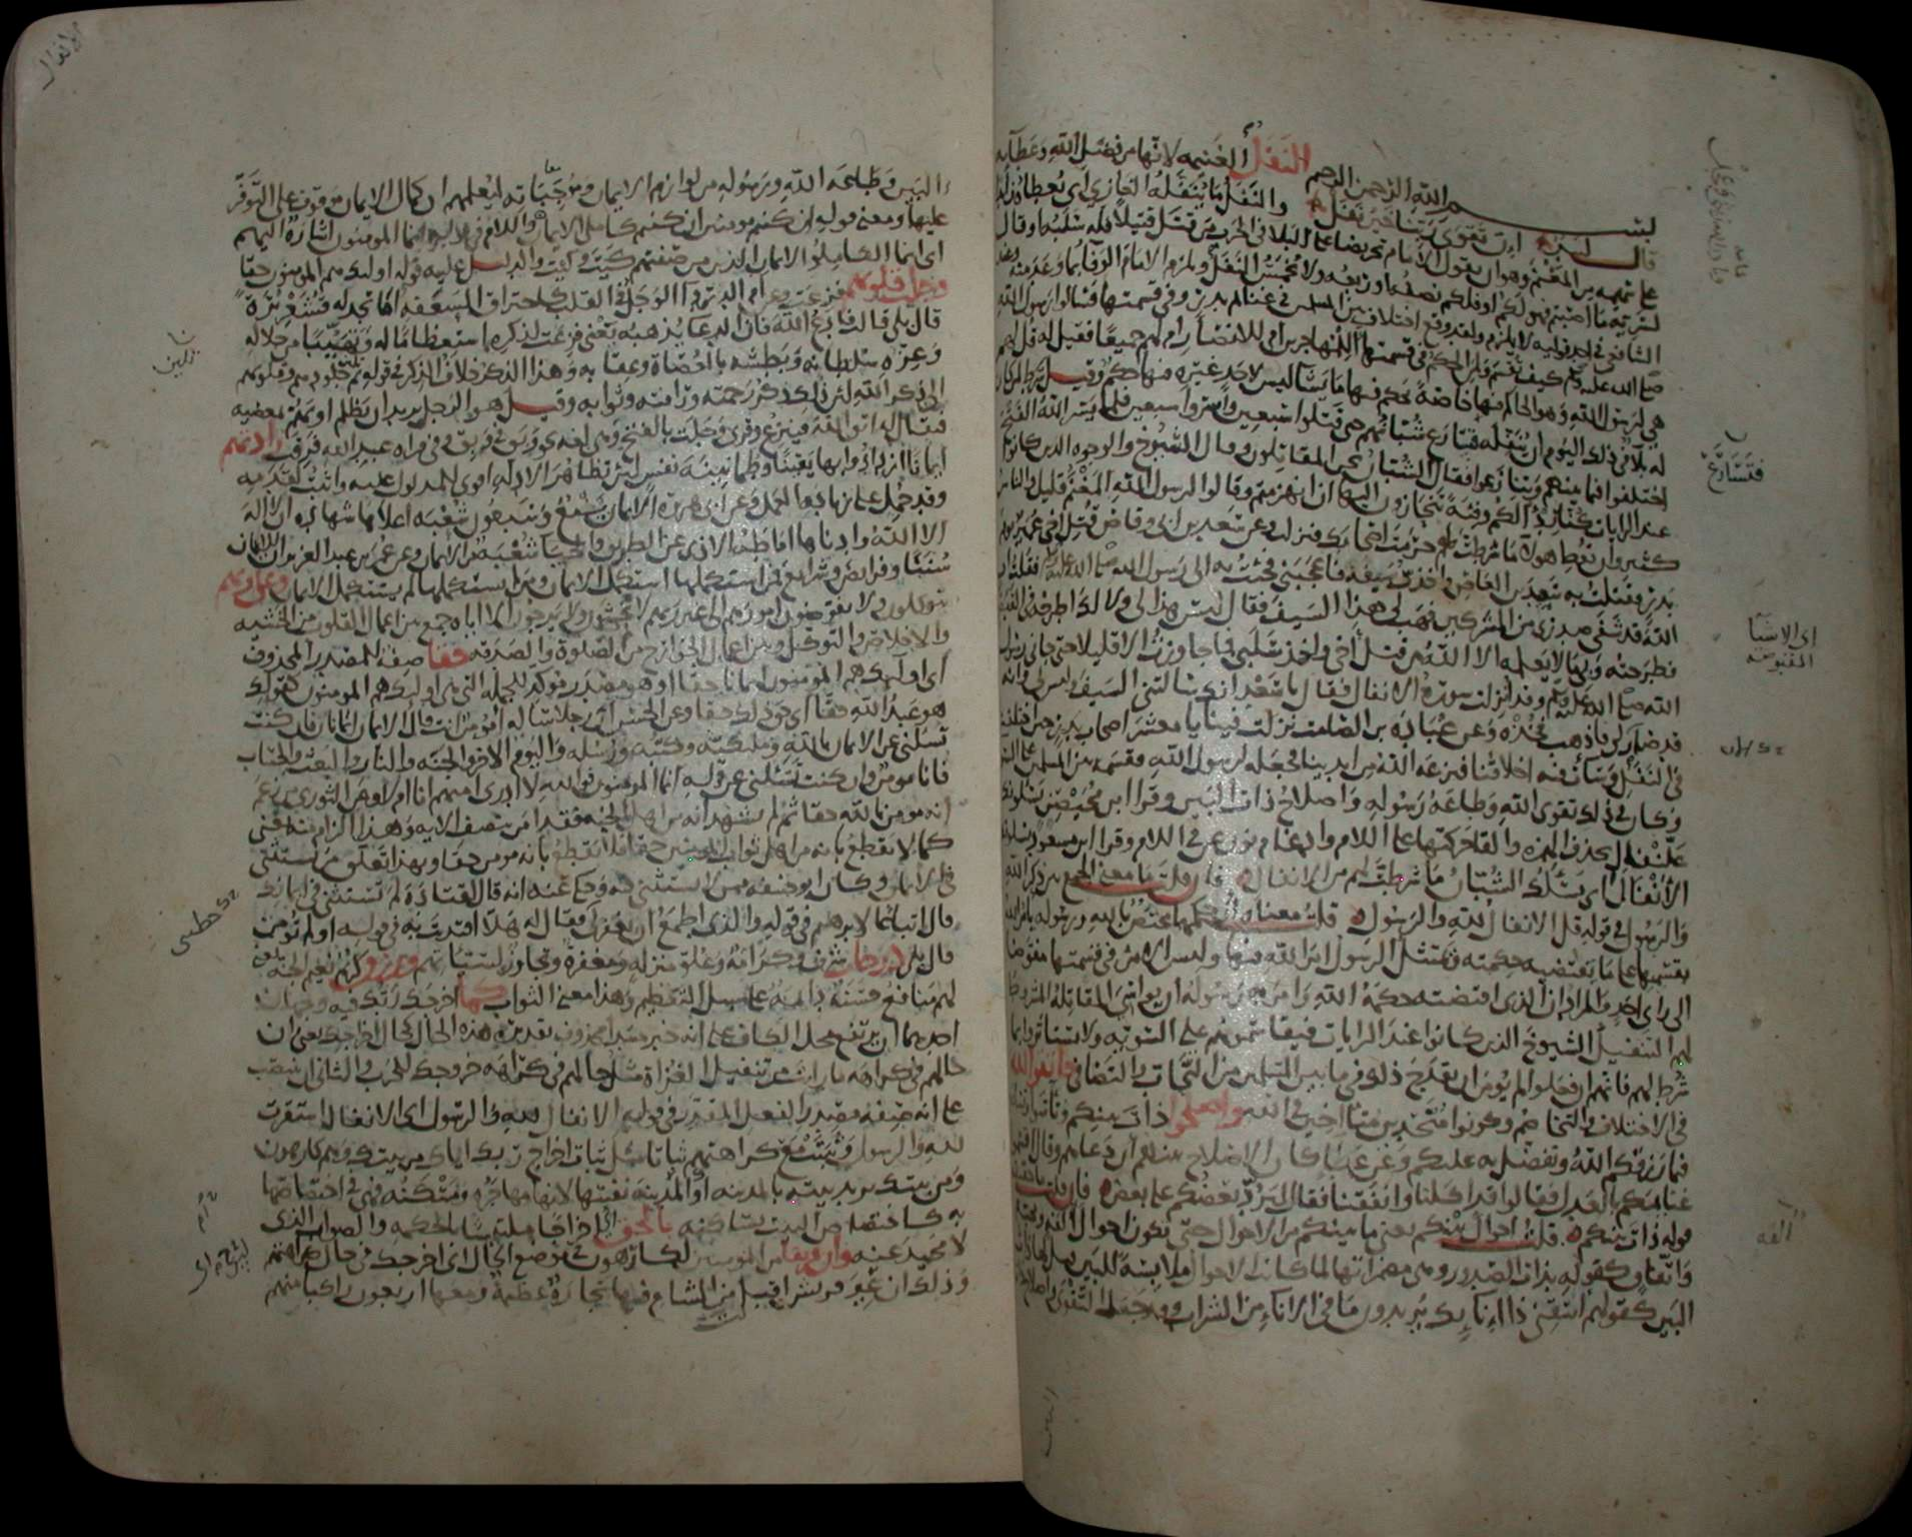 بسم الله الرحمن الرحيم النفل الغنيمه لانها من فضل الله وعطائه
قال لبيد ان تقوى ربنا خير نفل والنفل ما ينفله الغازي اي يعطاه زايدا
على سهمه من المغنم وهو ان يقول الامام تحريضا على البلاء في الحرب من قتل قتيلا فله سلبه او قال
لسريه ما اصبتم فهو لكم او فلكم نصفه او ربعه ولا يخمس النفل ويلزم الامام الوفاء بما وعد منه وعند
الشافعي في احد قوليه لا يلزم ولقد وقع اختلاف بين المسلمين في غنائم بدر وفي قسمتها فسالوا رسول الله
صلى الله عليه وسلم كيف تقسم ولمن الحكم في قسمتها اللمهاجرين ام للانصار ام لهم جميعا فقيل له قل لهم
هي لرسول الله وهو الحاكم فيها خاصة يحكم فيها ما يشاء ليس لاحد غيره فيها حكم وقيل شرط لمن كان
له بلاء في ذلك اليوم ان ينفله فتسارع شبانهم حتى قتلوا سبعين واسروا سبعين فلما يسر الله الفتح
اختلفوا فيما بينهم وتنازعوا فقال الشبان نحن المقاتلون وقال الشيوخ والوجوه الذين كانوا
عند الرايات كنا ردءا لكم وفئة تنحازون اليها ان انهزمتم وقالوا لرسول الله المغنم قليل والناس
كثير وان تعط هولاء ما شرطت لهم حرمت اصحابك فنزلت وعن سعد بن ابي وقاص قتل اخي عمير يوم
بدر فقتلت به سعيد بن العاص واخذت سيفه فاعجبني فجئت به الى رسول الله صلى الله عليه وسلم فقلت ان
الله قد شفى صدري من المشركين فهب لي هذا السيف فقال ليس هذا لي ولا لك اطرحه في القبض
فطرحته وبي ما لا يعلمه الا الله من قتل اخي واخذ سلبي فما جاوزت الا قليلا حتى جاني رسول
الله صلى الله عليه وسلم وقد انزلت سورة الانفال فقال يا سعد انك سالتني السيف وليس لي وانه
قد صار لي فاذهب فخذه وعن عباده بن الصامت نزلت فينا يا معشر اصحاب بدر حين اختلفنا
في النفل وساءت فيه اخلاقنا فنزعه الله من ايدينا فجعله لرسول الله فقسمه بين المسلمين على السواء
وكان في ذلك تقوى الله وطاعة رسوله واصلاح ذات البين وقرا ابن محيصن يسلونك
علنفال بحذف الهمزه والقاء حركتها على اللام وادغام نون عن في اللام وقرا ابن مسعود يسلونك
الانفال اي يسئلك الشبان ما شرطت لهم من الانفال فان قلت ما معنى الجمع بين ذكر الله
والرسول في قوله قل الانفال لله والرسول قلت معناه ان حكمها مختص بالله ورسوله يامر الله
بقسمتها على ما تقتضيه حكمته ويمتثل الرسول امر الله فيها وليس الامر في قسمتها مفوضا
الى راي احد والمراد ان الذي اقتضته حكمة الله وامر به رسوله ان يواسي المقاتلة المشروط
لهم التنفيل الشيوخ الذين كانوا عند الرايات فيقاسموهم على السوية ولا يستاثروا بما
شرط لهم فانهم ان فعلوا لم يومن ان يقدح ذلك فيما بين المسلمين من التحاب والتصافي فاتقوا الله
في الاختلاف والتخاصم وكونوا متحدين متاخين في الله واصلحوا ذات بينكم وتاسوا
فيما رزقكم الله وتفضل به عليكم وعن عطاء كان الاصلاح بينهم ان دعاهم وقال اقسموا
غنايمكم بالعدل فقالوا قد اكلنا وانفقنا فقال ليرد بعضكم على بعض فان قلت ما حقيقة
قوله ذات بينكم قلت احوال بينكم يعني ما بينكم من الاحوال حتى تكون احوال الفه ومحبة
واتفاق كقوله بذات الصدور وهي مضمراتها لما كانت الاحوال ملابسة للبين قيل لها ذات
البين كقولهم اسقني ذا انائك يريدون ما في الاناء من الشراب وقد جعل التقوى واصلاح
فتسارع
اي الاشياء المقبوضه
الفه
الانفال
البين وطاعه الله ورسوله من لوازم الايمان وموجباته ليعلمهم ان كمال الايمان موقوف على التوفر
عليها ومعنى قوله ان كنتم مومنين ان كنتم كاملي الايمان واللام في قوله انما المومنون اشارة اليهم
اي انما الكاملوا الايمان الذين من صفتهم كيت وكيت والدليل عليه قوله اولئك هم المومنون حقا
وجلت قلوبهم فزعت وعن ام الدرداء الوجل في القلب كاحتراق السعفه اما تجد له قشعريرة
قال بلى قالت فادع الله فان الدعاء يذهبه يعني فزعت لذكره استعظاما له وتهيبا من جلاله
وعزه سلطانه وبطشه بالعصاة وعقابه وهذا الذكر خلاف الذكر في قوله ثم تلين جلودهم وقلوبهم
الى ذكر الله لان ذلك ذكر رحمته ورافته وثوابه وقيل هو الرجل يريد ان يظلم او يهم بمعصيه
فيقال له اتق الله فينزع وقرئ وجلت بالفتح وهي لغه نحو وبق في وبق وفي قراءه عبد الله فرقت زادتهم
ايمانا ازدادوا بها يقينا وطمانينة نفس لان تظاهر الادله اقوى للمدلول عليه واثبت لقدمه
وقد حمل على زيادة العمل وعن ابي هريره الايمان بضع وسبعون شعبه اعلاها شهادة ان لا اله
الا الله وادناها اماطه الاذى عن الطريق والحياء شعبة من الايمان وعن عمر بن عبد العزيز ان للايمان
سننا وفرايض وشرايع فمن استكملها استكمل الايمان ومن لم يستكملها لم يستكمل الايمان وعلى ربهم
يتوكلون ولا يفوضون امورهم الى غير ربهم لا يخشون ولا يرجون الا اياه جمع بين اعمال القلوب من الخشيه
والاخلاص والتوكل وبين اعمال الجوارح من الصلوة والصدقه حقا صفة للمصدر المحذوف
اي اولئك هم المومنون ايمانا حقا او هو مصدر موكد للجمله التي هي اولئك هم المومنون كقولك
هو عبد الله حقا اي حق ذلك حقا وعن الحسن ان رجلا ساله امومن انت قال الايمان ايمانان فان كنت
تسلني عن الايمان بالله وملئكته وكتبه ورسله واليوم الاخر والجنه والنار والبعث والحساب
فانا مومن وان كنت تسئلني عن قوله انما المومنون فوالله لا ادري امنهم انا ام لا وعن الثوري من زعم
انه مومن بالله حقا ثم لم يشهد انه من اهل الجنه فقد امن بنصف الايه وهذا الزام منه يعني
كما لا يقطع بانه من اهل ثواب المومنين حقا فلا يقطع بانه مومن حقا وبهذا تعلق من يستثني
في الايمان وكان ابو حنيفه ممن لا يستثني فيه وحكي عنه انه قال لقتادة لم تستثني في ايمانك
قال اتباعا لابرهيم في قوله والذي اطمع ان يغفر لي فقال له هلا اقتديت به في قوله اولم تومن
قال بلى درجات شرف وكرامة وعلو منزله ومغفرة وتجاوز لسيئاتهم ورزق كريم نعيم الجنه يعني
لهم منافع حسنة دايمة على سبيل التعظيم وهذا معنى الثواب كما اخرجك ربك فيه وجهان
احدهما ان يرتفع محل الكاف على انه خبر مبتدا محذوف تقديره هذه الحال كحال اخراجك يعني ان
حالهم في كراهه ما رايت من تنفيل الغزاة مثل حالهم في كراهه خروجك للحرب والثاني ان ينتصب
على انه صفة مصدر الفعل المقدر في قوله الانفال لله والرسول اي الانفال استقرت
لله والرسول وثبتت مع كراهتهم ثباتا مثل ثبات اخراج ربك اياك من بيتك وهم كارهون
ومن بيتك يريد بيته بالمدينه او المدينة نفسها لانها مهاجره ومسكنه فهي في اختصاصها
به كاختصاص البيت بساكنه بالحق اي اخراجا ملتبسا بالحكمه والصواب الذي
لا محيد عنه وان فريقا من المومنين لكارهون في موضع الحال اي اخرجك في حال كراهتهم
وذلك ان عير قريش اقبلت من الشام فيها تجارة عظيمة ومعها اربعون راكبا منهم